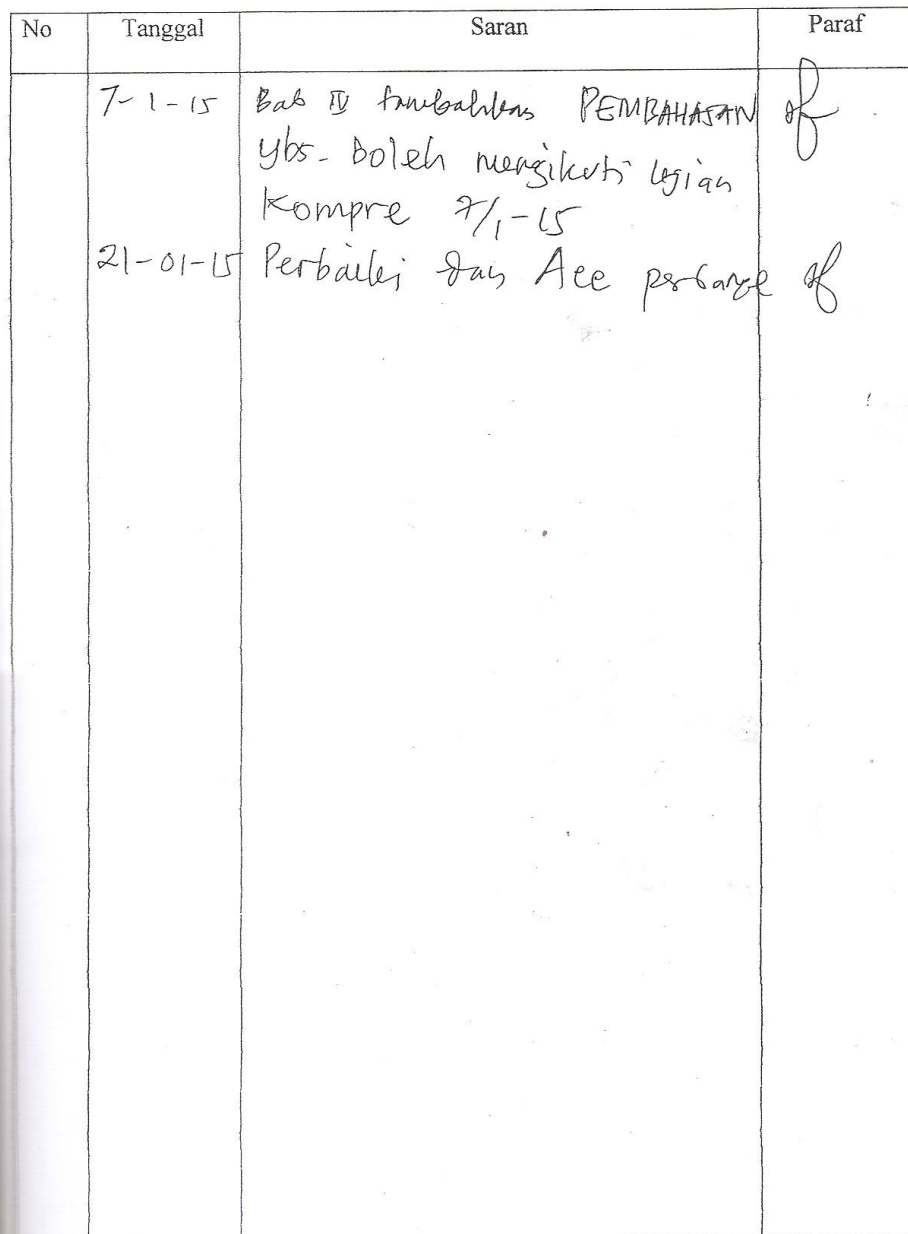 No Tanggal Saran Paraf
7-1-15 Bab IV tambahkan PEMBAHASAN
ybs. Boleh mengikuti ujian
Kompre 7/1-15
21-01-15 Perbaiki dan Acc